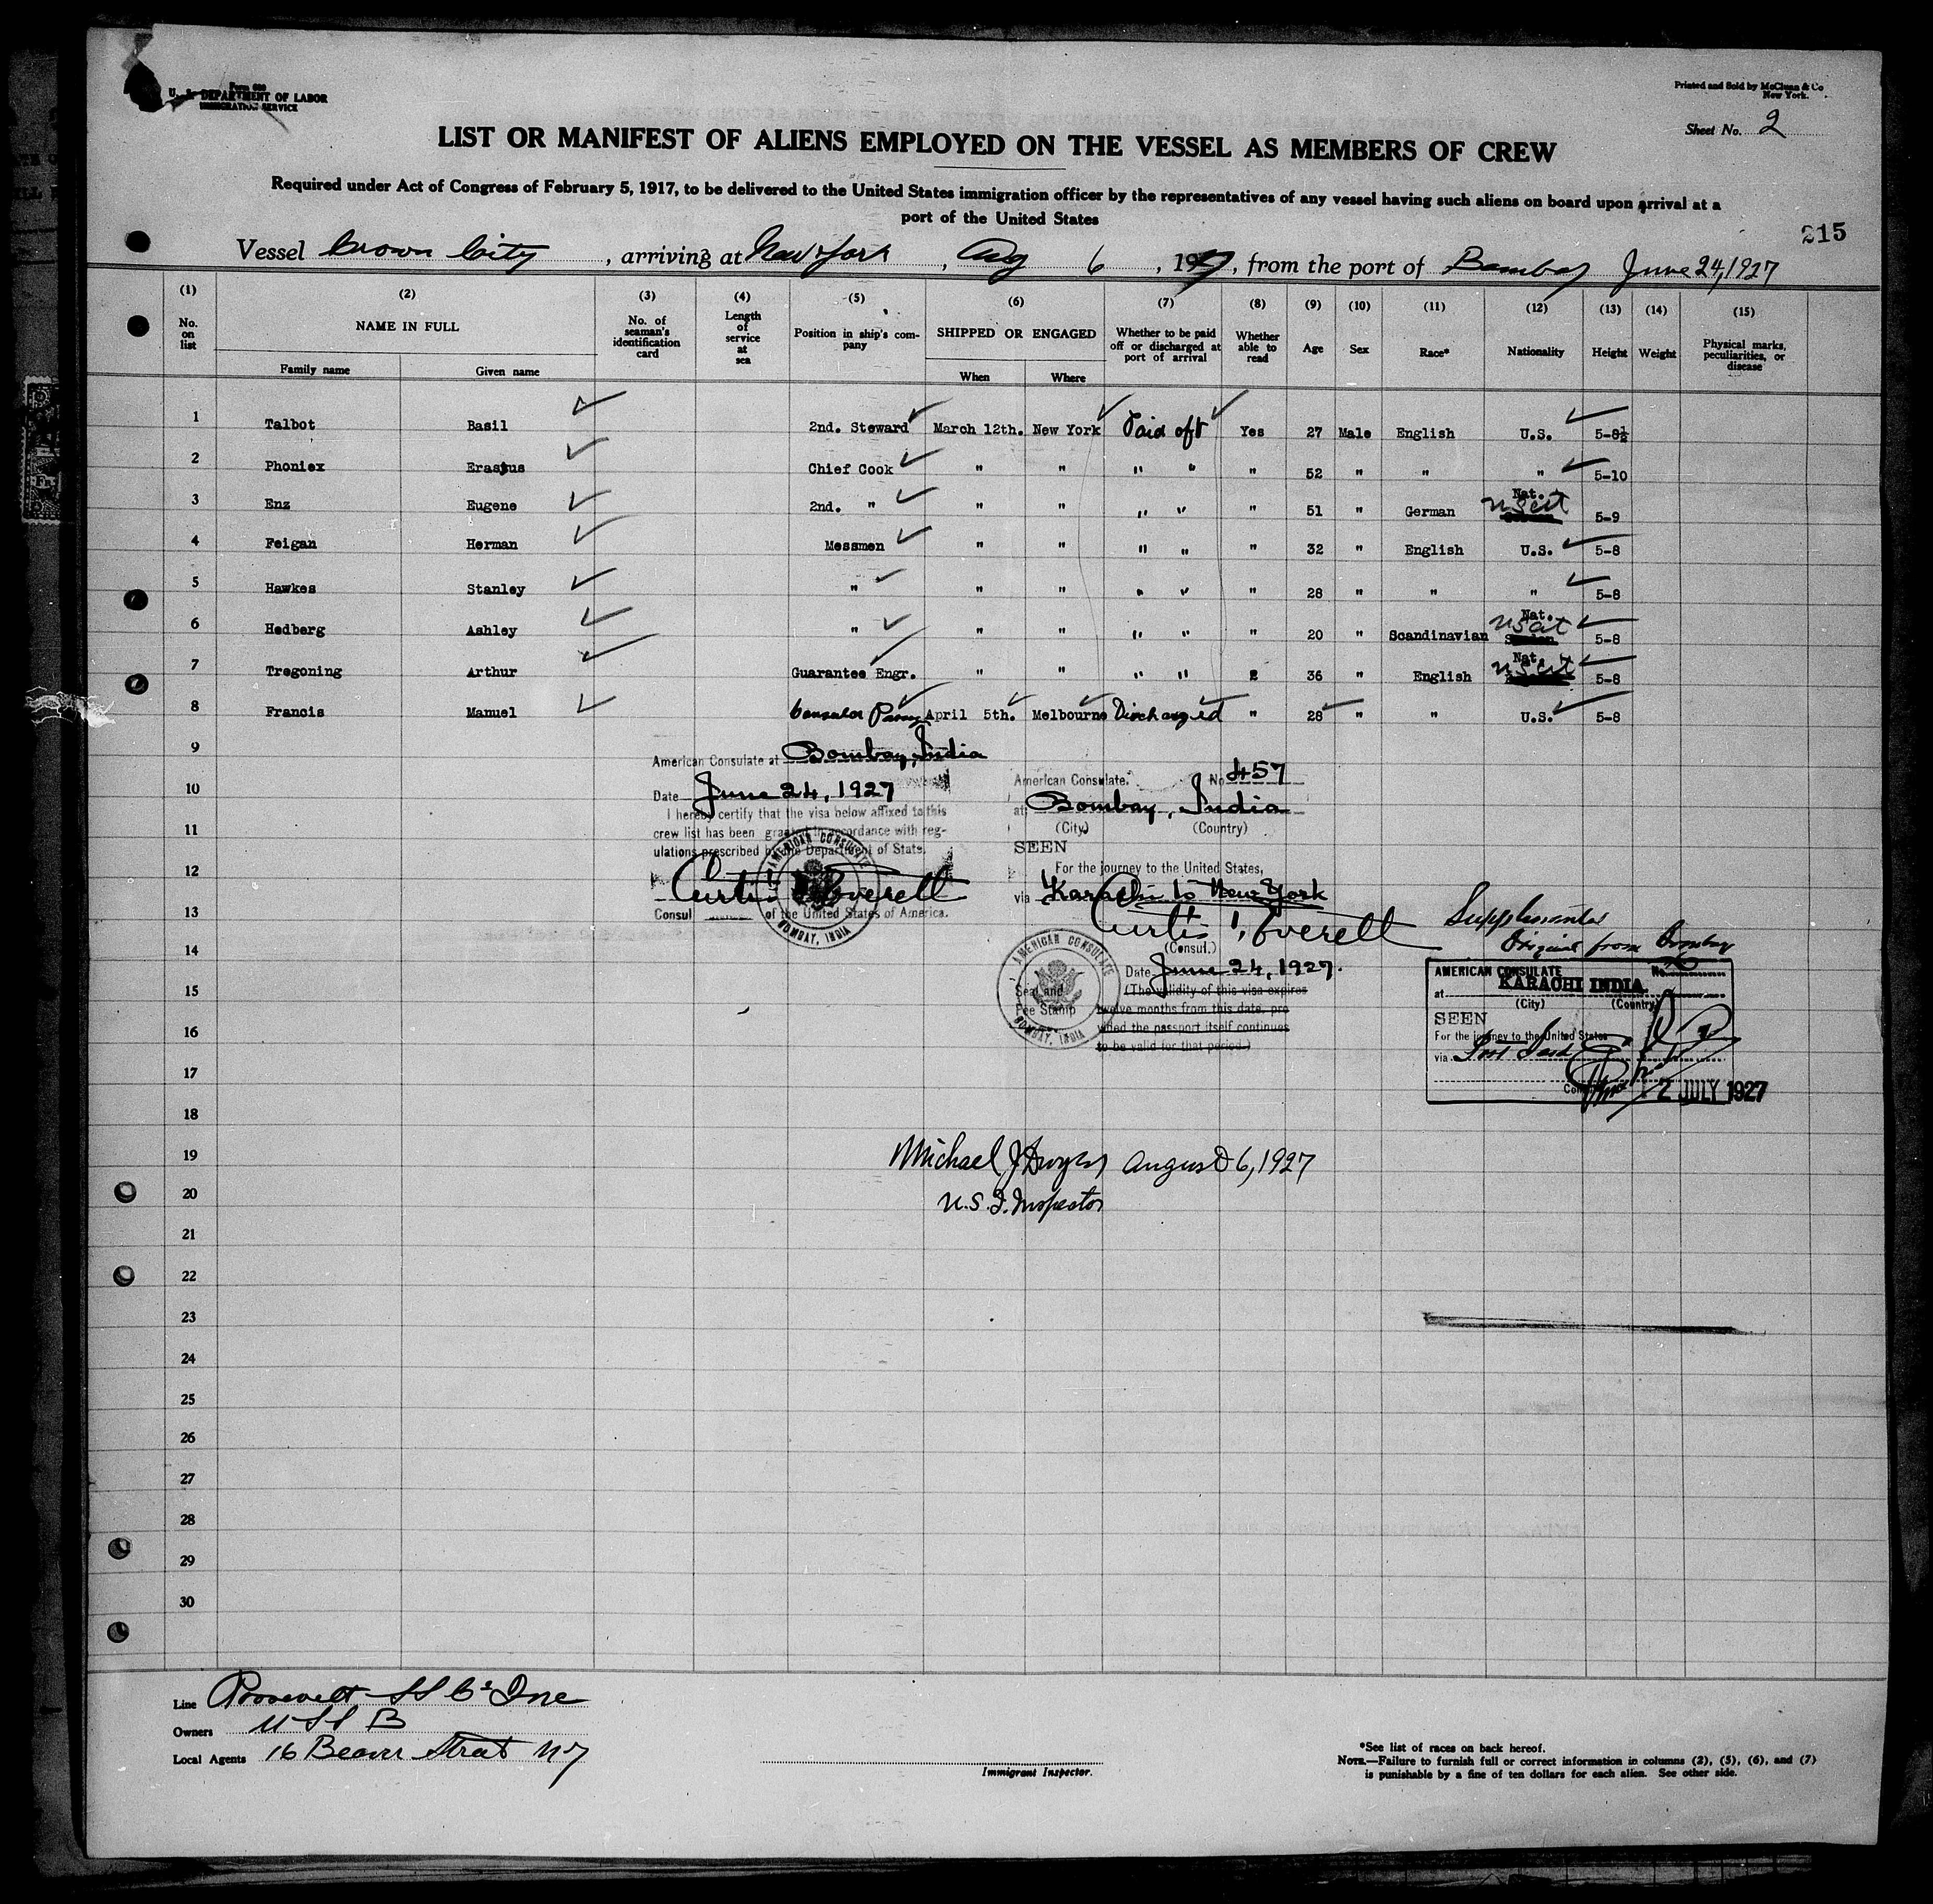 Form 680
U. S. DEPARTMENT OF LABOR
IMMIGRATION SERVICE
Printed and Sold by McClunn & Co
New York.
Sheet No. 2
LIST OR MANIFEST OF ALIENS EMPLOYED ON THE VESSEL AS MEMBERS OF CREW
Required under Act of Congress of February 5, 1917, to be delivered to the United States immigration officer by the representatives of any vessel having such aliens on board upon arrival at a
port of the United States
215
Vessel Crown City, arriving at New York, Aug 6, 1927, from the port of Bombay June 24, 1927
(1) (2) (3) (4) (5) (6) (7) (8) (9) (10) (11) (12) (13) (14) (15)
No. on list NAME IN FULL No. of seaman's identification card Length of service at sea Position in ship's company SHIPPED OR ENGAGED Whether to be paid off or discharged at port of arrival Whether able to read Age Sex Race* Nationality Height Weight Physical marks, peculiarities, or disease
Family name Given name When Where
1 Talbot Basil 2nd. Steward March 12th. New York Paid off Yes 27 Male English U.S. 5-8½
2 Phoniex Erastus Chief Cook " " " " " 52 " " " 5-10
3 Enz Eugene 2nd. " " " " " " 51 " German Nat. US cit 5-9
4 Feigan Herman Messmen " " " " " 32 " English U.S. 5-8
5 Hawkes Stanley " " " " " " 28 " " " 5-8
6 Hedberg Ashley " " " " " " 20 " Scandinavian Nat. US cit 5-8
7 Tregoning Arthur Guarantee Engr. " " " " " 36 " English Nat. US cit 5-8
8 Francis Manuel Consular April 5th. Melbourne Discharged " 28 " " U.S. 5-8
9
10
11
12
13
14
15
16
17
18
19
20
21
22
23
24
25
26
27
28
29
30
American Consulate at Bombay, India
Date June 24, 1927
I hereby certify that the visa below affixed to this
crew list has been granted in accordance with reg-
ulations prescribed by the Department of State.
Curtis T. Everett
Consul of the United States of America.
AMERICAN CONSULATE
BOMBAY, INDIA
American Consulate. No 457
at Bombay, India
(City) (Country)
SEEN
For the journey to the United States,
via Karachi to New York
Curtis T. Everett
(Consul.)
Date June 24, 1927.
Seal and
Fee Stamp
(The validity of this visa expires
twelve months from this date, pro
vided the passport itself continues
to be valid for that period.)
AMERICAN CONSULATE
BOMBAY, INDIA
Supplemental
Original from Bombay
AMERICAN CONSULATE No.
at KARACHI INDIA.
(City) (Country)
SEEN
For the journey to the United States
via
2 JULY 1927
Michael J Dwyer August 6, 1927
U.S. I. Inspector
Line Roosevelt SS Co Inc
Owners U S S B
Local Agents 16 Beaver Street NY
Immigrant Inspector.
*See list of races on back hereof.
NOTE.—Failure to furnish full or correct information in columns (2), (5), (6), and (7)
is punishable by a fine of ten dollars for each alien. See other side.